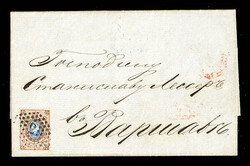 Господину
Станиславу Лессеръ
въ Варшавѣ